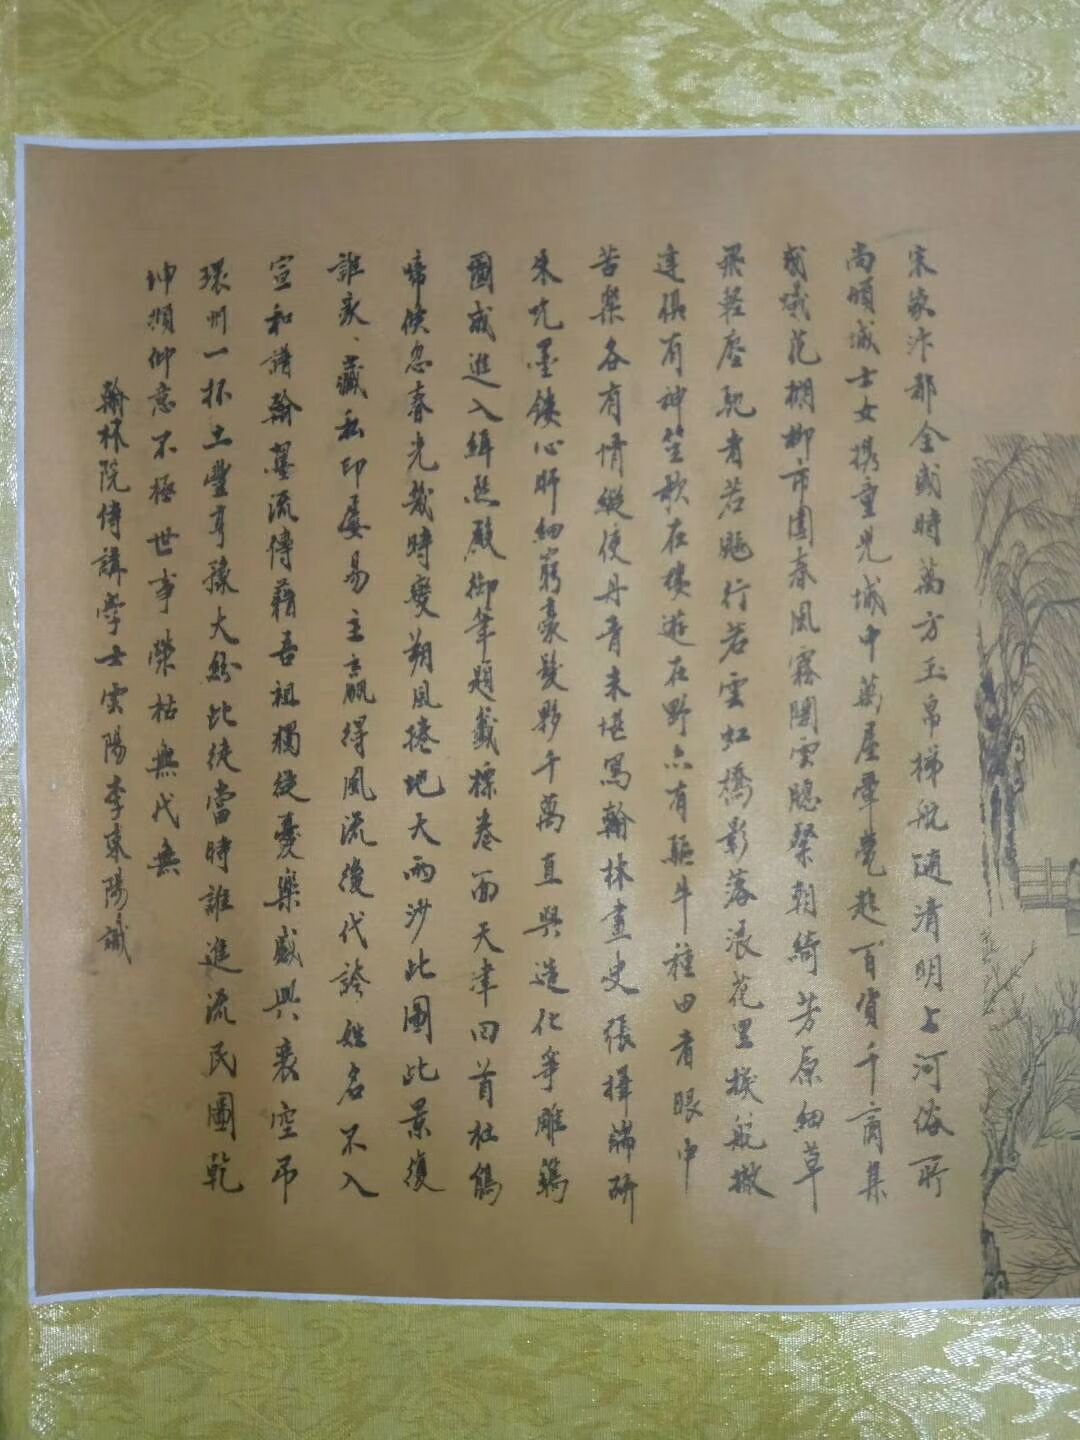 宋家汴都全盛時萬方玉帛梯航隨清明上河俗所
尚傾城士女携童兒城中萬屋翚甍起百貨千商集
成蟻花棚柳市圍春風霧閣雲牎粲朝綺芳原細草
飛輕塵馳者若飈行若雲虹橋影落浪花里捩舵撇
篷俱有神笙歌在樓遊在野亦有驅牛種田者眼中
苦樂各有情縱使丹青未堪寫翰林畫史張擇端研
朱吮墨鏤心肝細窮豪髮夥千萬直與造化爭雕鐫
圖成進入緝熙殿御筆題籤標卷面天津回首杜鵑
啼倏忽春光幾時變朔風捲地大雨沙此圖此景復
誰家、藏私印屡易主贏得風流後代誇姓名不入
宣和譜翰墨流傳藉吾祖獨從憂樂感興衰空弔
環州一抔土豐亨豫大紛此徒當時誰進流民圖乾
坤頫仰意不極世事榮枯無代無
翰林院侍講學士雲陽李東陽識